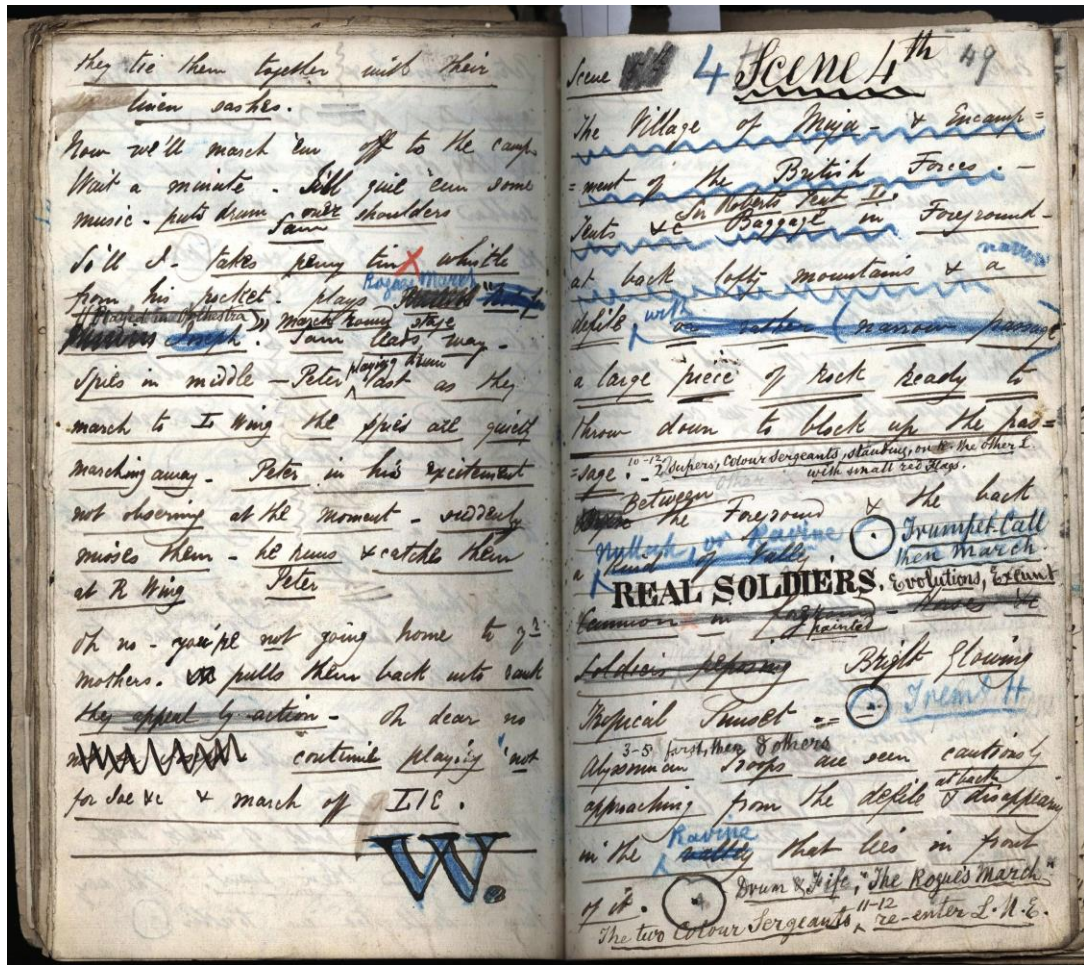 they tie them together with their
linen sashes.
Now we'll march 'em off to the camp
Wait a minute - I'll give 'em some
music - puts drum over shoulders
Sam
So'll I - takes penny tin whistle
from his pocket - plays Rogues March
(Played in Orchestra) march round stage
Joseph. Sam leads way -
playing drum
Spies in middle - Peter last as they
march to I Wing the spies are quietly
marching away - Peter in his excitement
not observing at the moment - suddenly
misses them - he runs & catches them
at R Wing Peter
Oh no - you're not going home to yr
mothers. pulls them back into rank
they appeal by action - Oh dear no
continue playing 'not
for Joe &c & march off I E.
W.
Scene 4 Scene 4th 49
The Village of Muja - & Encamp=
=ment of the British Forces. -
Sir Roberts Tent I.
Tents &c Baggage in Foreground -
at back lofty mountains & a narrow
defile with or rather (narrow passage)
a large piece of Rock Ready to
throw down to block up the pas=
=sage. 10-12 2 Supers, Colour Sergeants, standing, on R. the other L.
with small red Flags.
Between the Foreground & the back
Nullah or Ravine
a Kind of Vally. Trumpet Call
then March.
REAL SOLDIERS. Evolutions, Exeunt
Cannon in - Horses &c
painted
Soldiers reposing Bright Glowing
Tropical Sunset == Trem: H
3-5 first, then 8 others
Abyssinian Troops are seen cautiously
approaching from the defile at back & disappearing
in the Ravine valley that lies in front
of it. 4 Drum & Fife, "The Rogue's March"
The two Colour Sergeants, 11-12 re-enter L.U.E.